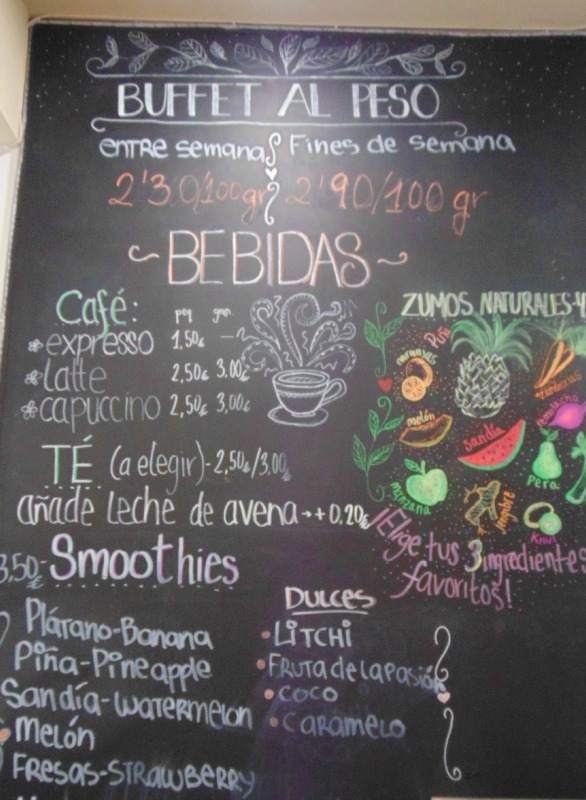 BUFFET AL PESO
entre semana Fines de semana
2'30/100gr 2'90/100 gr
~BEBIDAS~
Café: peq gran
expresso 1,50€ —
latte 2,50€ 3,00€
capuccino 2,50€ 3,00€
TÉ (a elegir)-2,50€/3,00€
añade leche de avena→+0,20€
3,50€ Smoothies
Plátano-Banana
Piña-Pineapple
Sandía-Watermelon
Melón
Fresas-Strawberry
DULCES
LITCHI
FRUTA de la PASIÓN
COCO
CARAMELO
ZUMOS NATURALES-4
Piña
naranjas
zanahorias
remolacha
melón
sandía
pera
manzana
jengibre
Kiwi
¡Elige tus 3 ingredientes
favoritos!